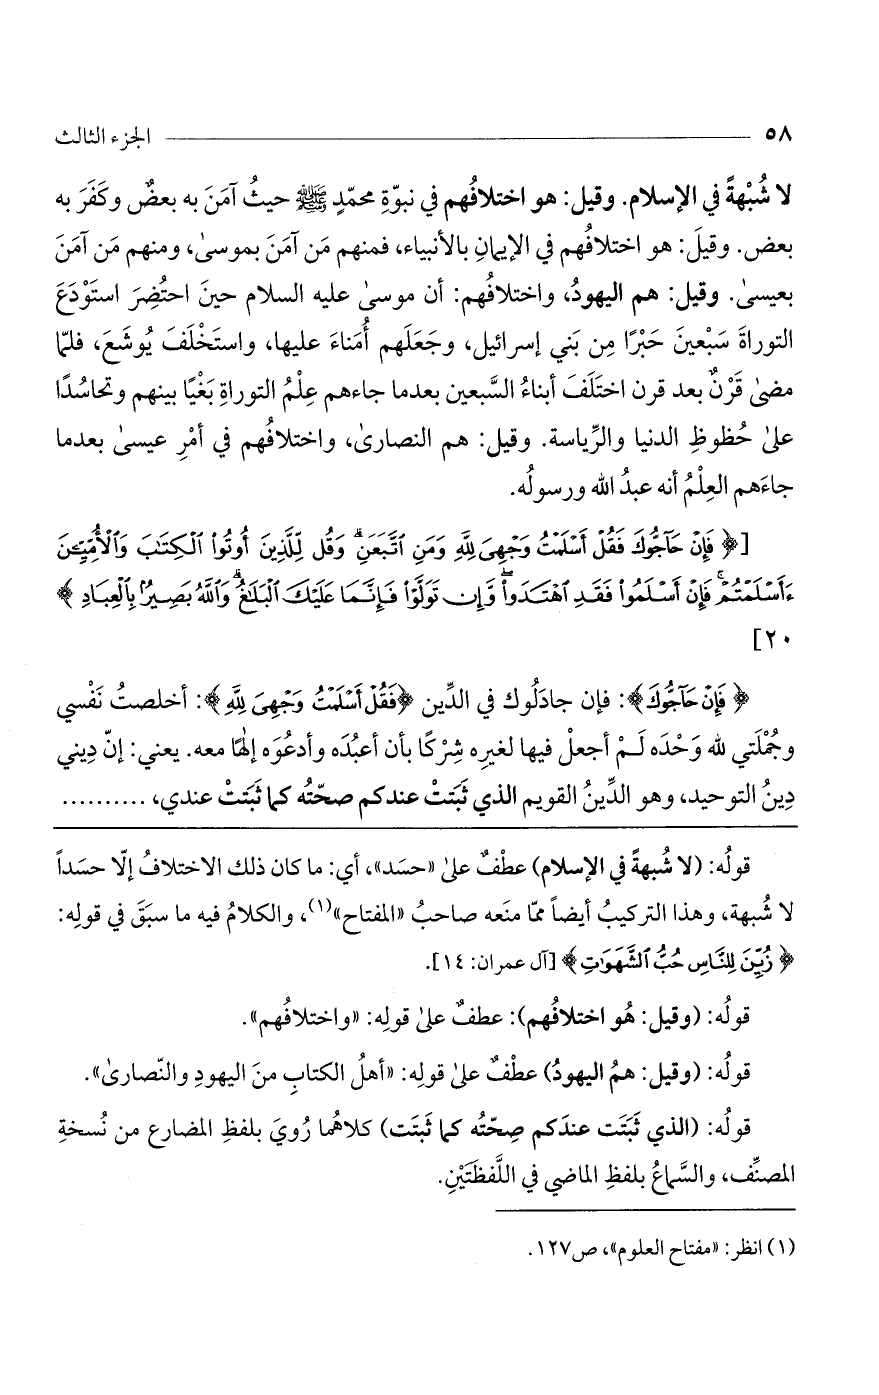 ٥٨ الجزء الثالث
لا شُبْهةً في الإسلام. وقيل: هو اختلافُهم في نبوّةِ محمّدٍ ﷺ حيثُ آمَنَ به بعضٌ وكَفَرَ به
بعض. وقيلَ: هو اختلافُهم في الإيمانِ بالأنبياء، فمنهم مَن آمَنَ بموسىٰ، ومنهم مَن آمَنَ
بعيسىٰ. وقيل: هم اليهودُ، واختلافُهم: أن موسىٰ عليه السلام حينَ احتُضِرَ استَوْدَعَ
التوراةَ سَبْعينَ حَبْرًا مِن بَني إسرائيل، وجَعَلَهم أُمَناءَ عليها، واستَخْلَفَ يُوشَعَ، فلمّا
مضىٰ قَرْنٌ بعد قرن اختَلَفَ أبناءُ السَّبعين بعدما جاءهم عِلْمُ التوراةِ بَغْيًا بينهم وتحاسُدًا
علىٰ حُظوظِ الدنيا والرِّياسة. وقيل: هم النصارىٰ، واختلافُهم في أمْرِ عيسىٰ بعدما
جاءَهم العِلْمُ أنه عبدُ الله ورسولُه.
[﴿ فَإِنْ حَآجُّوكَ فَقُلْ أَسْلَمْتُ وَجْهِىَ لِلَّهِ وَمَنِ ٱتَّبَعَنِ ۗ وَقُل لِّلَّذِينَ أُوتُوا۟ ٱلْكِتَـٰبَ وَٱلْأُمِّيِّـۧنَ
ءَأَسْلَمْتُمْ ۚ فَإِنْ أَسْلَمُوا۟ فَقَدِ ٱهْتَدَوا۟ ۖ وَّإِن تَوَلَّوْا۟ فَإِنَّمَا عَلَيْكَ ٱلْبَلَـٰغُ ۗ وَٱللَّهُ بَصِيرٌۢ بِٱلْعِبَادِ ﴾
٢٠]
﴿ فَإِنْ حَآجُّوكَ﴾: فإن جادَلُوك في الدِّين ﴿فَقُلْ أَسْلَمْتُ وَجْهِىَ لِلَّهِ ﴾: أخلصتُ نَفْسي
وجُمْلَتي لله وَحْدَه لَـمْ أجعلْ فيها لغيرِه شِرْكًا بأن أعبُدَه وأدعُوَه إلٰهًا معه. يعني: إنّ دِيني
دِينُ التوحيد، وهو الدِّينُ القويم الذي ثَبَتَتْ عندكم صحّتُه كما ثَبَتَتْ عندي، ..........
قولُه: (لا شُبهةً في الإسلام) عطْفٌ علىٰ «حسَد»، أي: ما كان ذلك الاختلافُ إلّا حسَداً
لا شُبهة، وهذا التركيبُ أيضاً ممّا منَعه صاحبُ «المفتاح»(١)، والكلامُ فيه ما سبَقَ في قولِه:
﴿ زُيِّنَ لِلنَّاسِ حُبُّ ٱلشَّهَوَٰتِ ﴾ [آل عمران: ١٤].
قولُه: (وقيل: هُو اختلافُهم): عطفٌ علىٰ قولِه: «واختلافُهم».
قولُه: (وقيل: همُ اليهودُ) عطْفٌ علىٰ قولِه: «أهلُ الكتابِ منَ اليهودِ والنّصارىٰ».
قولُه: (الذي ثَبَتَت عندَكم صِحّتُه كما ثَبَتَت) كلاهُما رُويَ بلفظِ المضارع من نُسخةِ
المصنِّف، والسَّماعُ بلفظِ الماضي في اللَّفظَتَيْنِ.
(١) انظر: «مفتاح العلوم»، ص١٢٧.